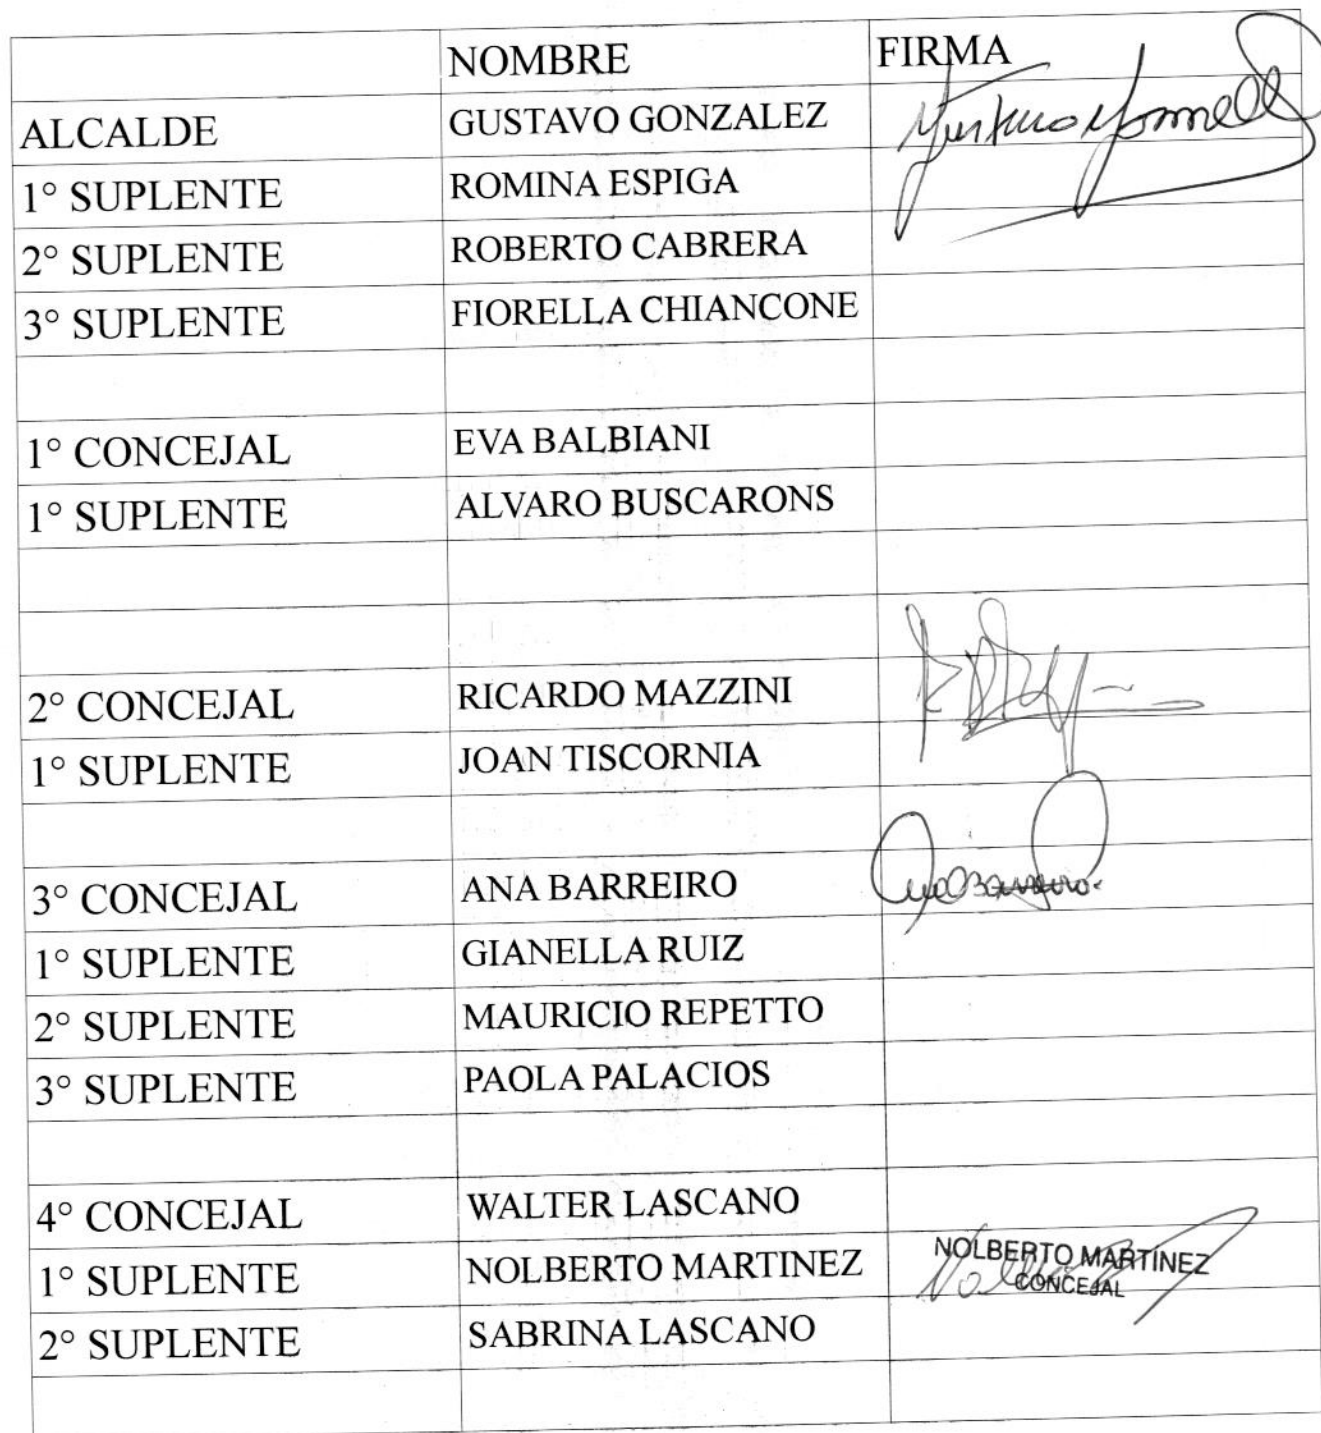 NOMBRE FIRMA
ALCALDE GUSTAVO GONZALEZ Gustavo Gonzalez
1° SUPLENTE ROMINA ESPIGA
2° SUPLENTE ROBERTO CABRERA
3° SUPLENTE FIORELLA CHIANCONE
1° CONCEJAL EVA BALBIANI
1° SUPLENTE ALVARO BUSCARONS
2° CONCEJAL RICARDO MAZZINI
1° SUPLENTE JOAN TISCORNIA
3° CONCEJAL ANA BARREIRO Ana Barreiro
1° SUPLENTE GIANELLA RUIZ
2° SUPLENTE MAURICIO REPETTO
3° SUPLENTE PAOLA PALACIOS
4° CONCEJAL WALTER LASCANO
1° SUPLENTE NOLBERTO MARTINEZ NOLBERTO MARTINEZ
CONCEJAL
2° SUPLENTE SABRINA LASCANO